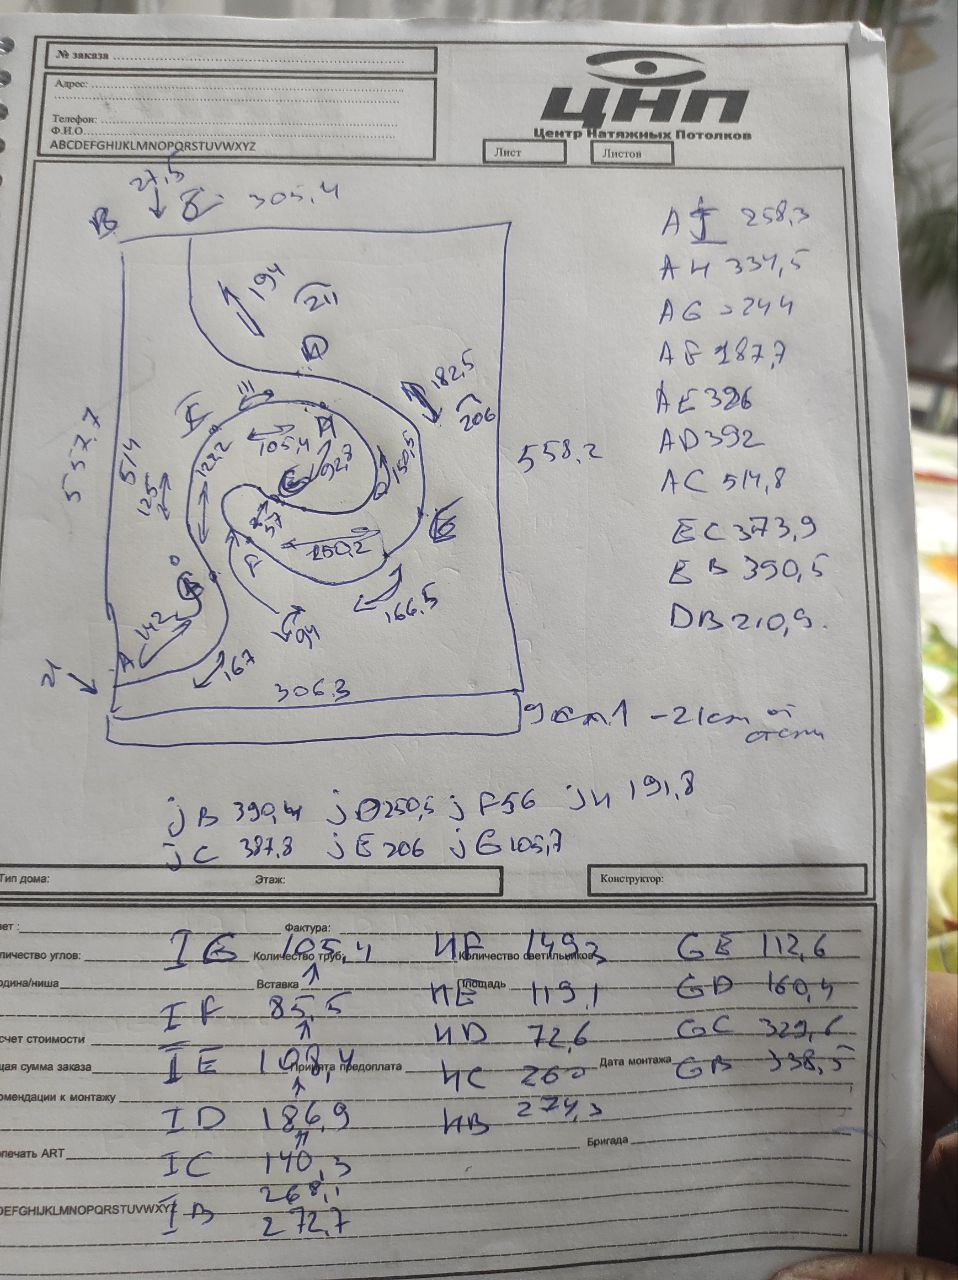 № заказа
Адрес:
Телефон:
Ф.И.О.
ABCDEFGHIJKLMNOPQRSTUVWXYZ
ЦНП
Центр Натяжных Потолков
Лист
Листов
27,5
B
305,4
194
211
D
182,5
206
I
111
H
105,4
122,2
150,5
557,7
514
125
558,2
57
150,2
F
166,5
94
142
A
167
21
306.3
-21 cm от
AI 258,3
AH 334,5
AG 244
AF 187,7
AE 326
AD 392
AC 514,8
EC 373,9
EB 390,5
DB 210,9.
jB 390,4 jD 250,5 jF 56 jH 191,8
jC 387,8 jE 206 jG 105,7
Тип дома:
Этаж:
Конструктор:
Фактура:
Количество труб
Количество светильников
Вставка
площадь
Принята предоплата
Дата монтажа
Бригада
IG 105,4 HF 149,2 GE 112,6
IF 85,5 HE 119,1 GD 160,4
HD 72,6 GC 329,6
HC 260 GB 338,5
ID 186,9 HB 274,3
IC 140,3
268,1
IB 272,7